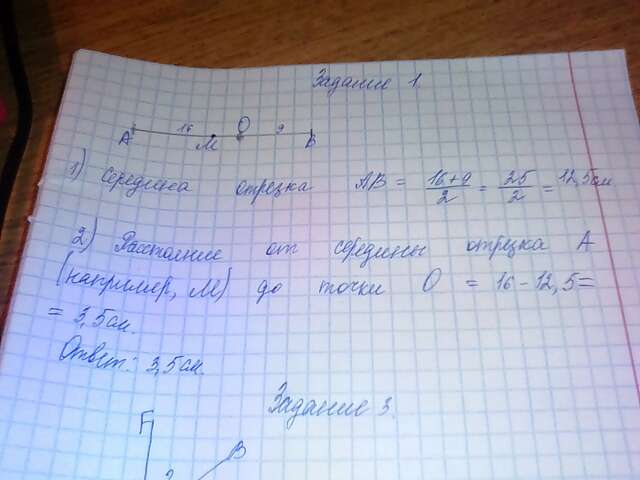 Задание 1.
16 O 9
A M B
1) Середина отрезка AB = 16+9/2 = 25/2 = 12,5см
2) Расстояние от середины отрезка A
(например, M) до точки O = 16 - 12,5=
= 3,5см.
Ответ: 3,5см.
Задание 3.
F
B
2